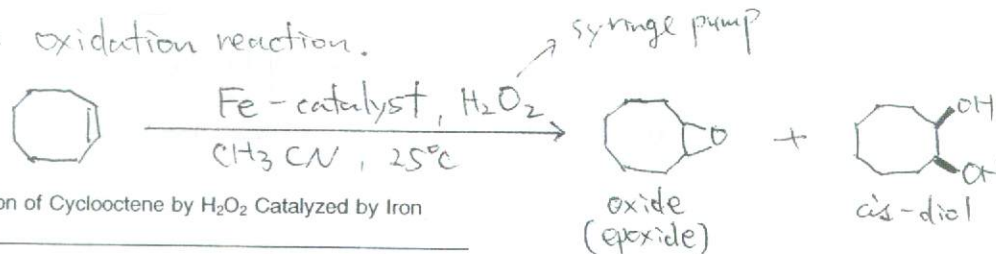 oxidation reaction.
syringe pump
Fe-catalyst, H2O2
CH3CN, 25°C
O
+
OH
OH
on of Cyclooctene by H₂O₂ Catalyzed by Iron
oxide
(epoxide)
cis-diol